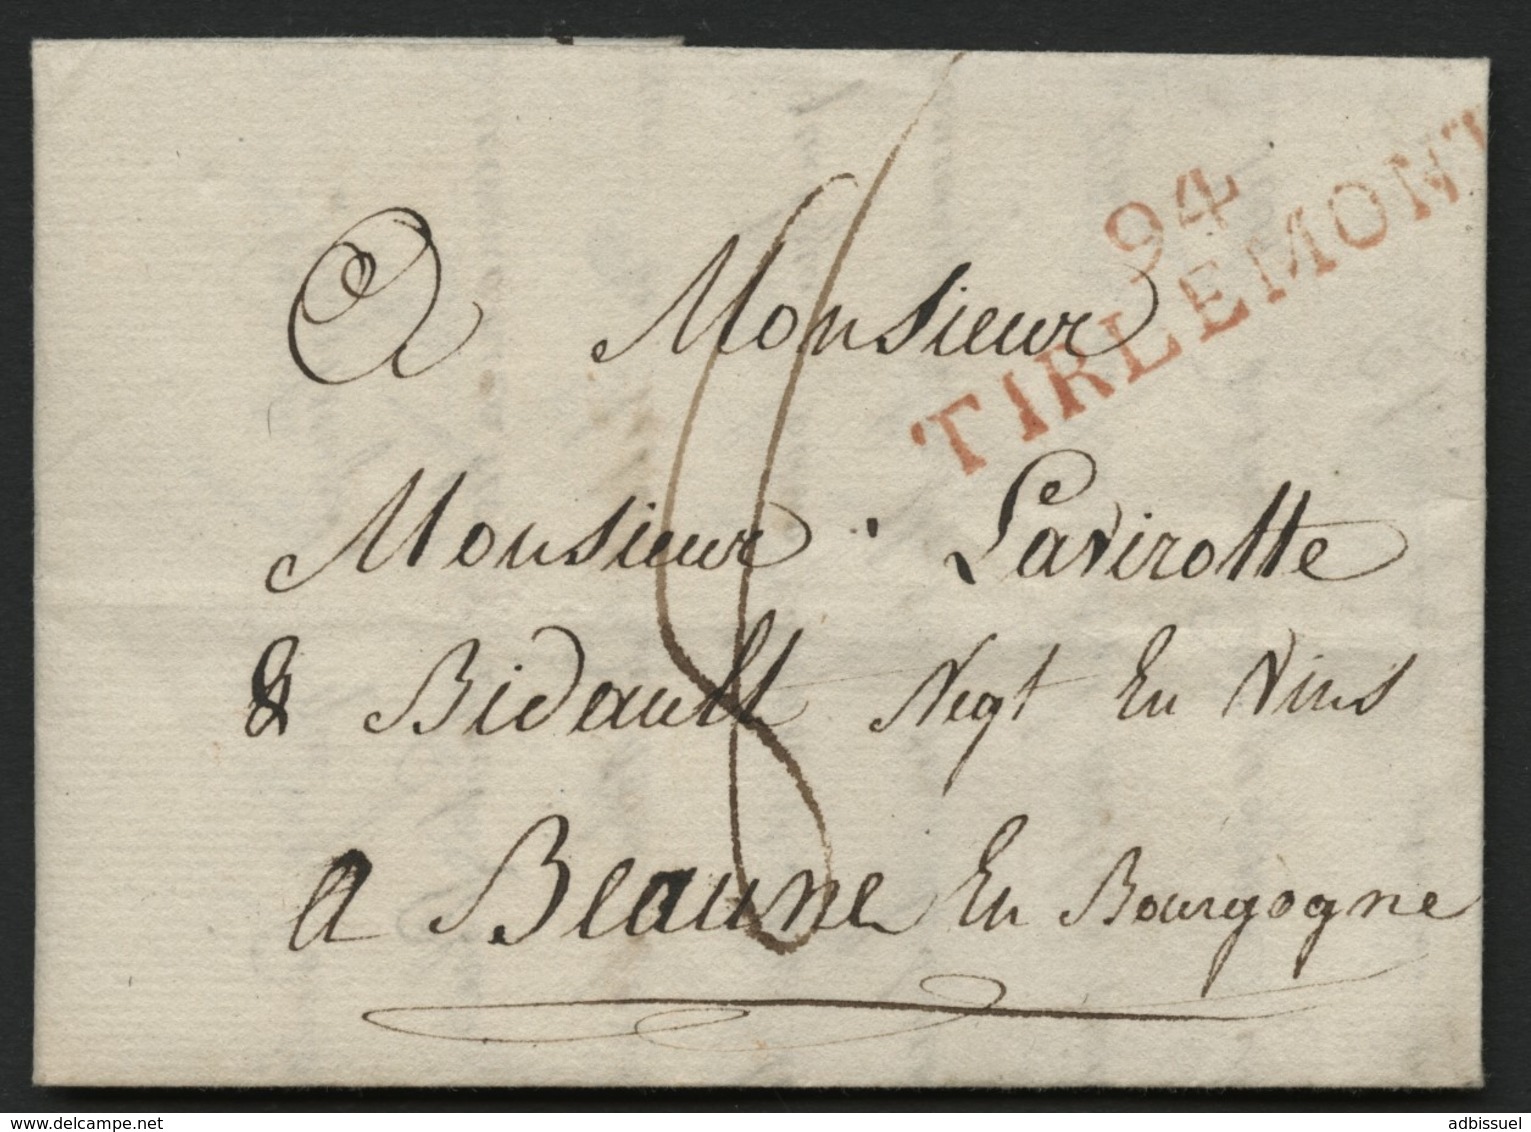 94
TIRLEMONT
A Monsieur
Monsieur Lavirotte
& Bidault Negt En Vins
a Beaune En Bourgogne
8
delcampe.net
adbissuel